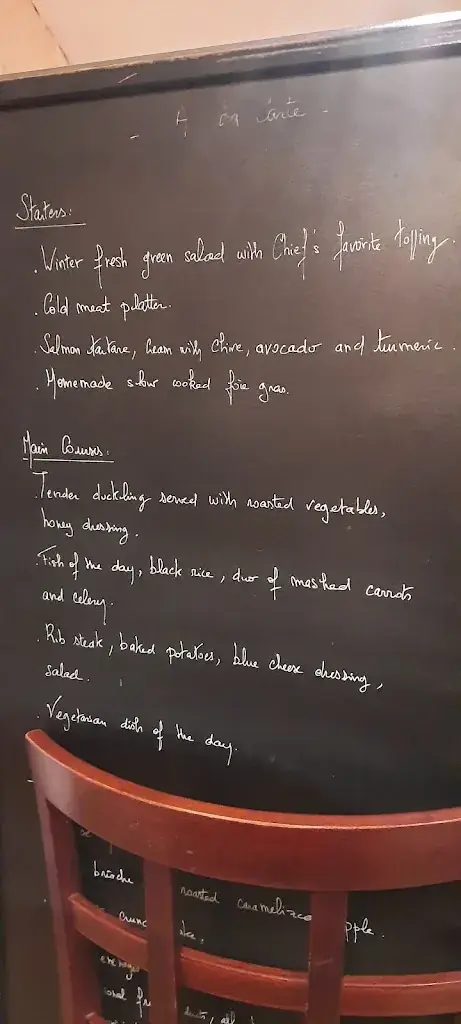 - A la carte -
Starters:
. Winter fresh green salad with Chief's favorite topping.
. Cold meat platter.
. Salmon tartare, cream with chive, avocado and turmeric.
. Homemade slow cooked foie gras.
Main Courses:
. Tender duckling served with roasted vegetables,
honey dressing.
. Fish of the day, black rice, duo of mashed carrots
and celery.
. Rib steak, baked potatoes, blue cheese dressing,
salad.
. Vegetarian dish of the day.
brioche roasted